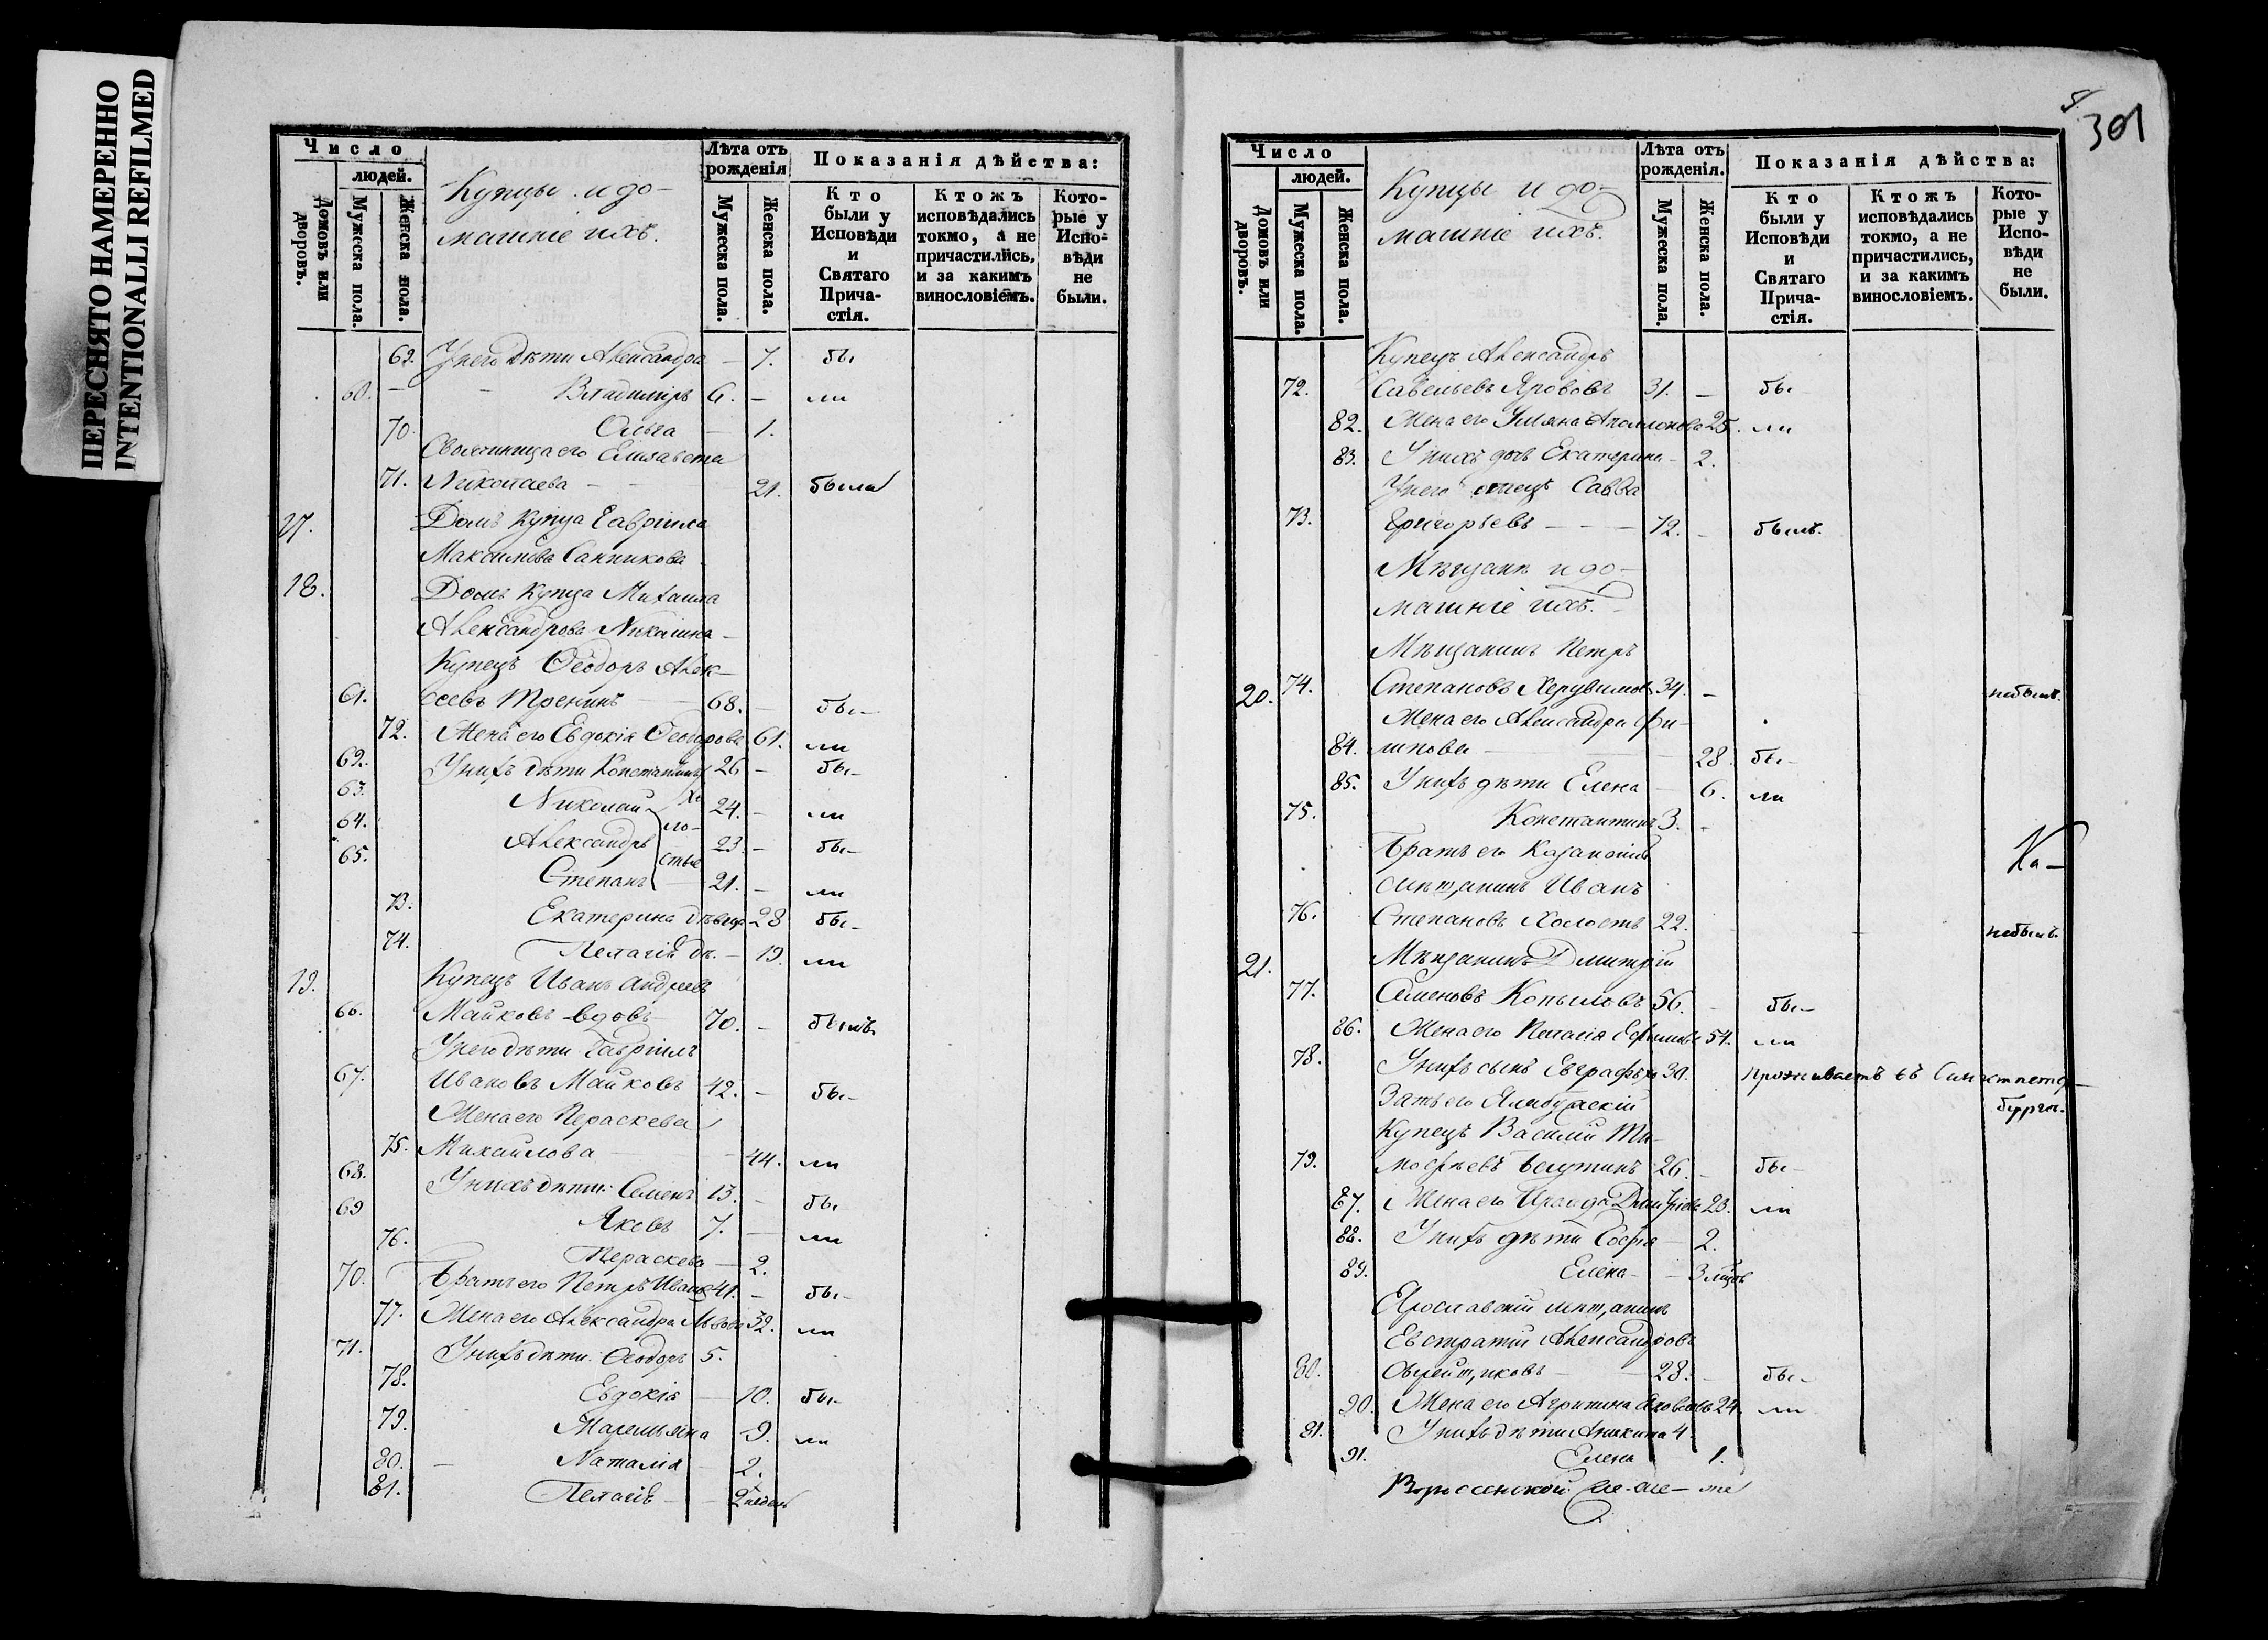 ПЕРЕСНЯТО НАМЕРЕННО
INTENTIONALLI REFILMED
Число
людей.
Домовъ или дворовъ.
Мужеска пола.
Женска пола.
Купцы и до-
машніе ихъ.
Лѣта отъ рожденія
Мужеска пола.
Женска пола.
Показанія дѣйства:
Кто были у Исповѣди и Святаго Прича-стія.
Ктожъ исповѣдались токмо, а не причастились, и за какимъ винословіемъ.
Кото-рые у Испо-вѣди не были.
69. У него дѣти Александра — 7. бы
60. — Владиміръ 6. — ли
70. Ольга — 1.
Своячиница его Елизавета
71. Николаева — 21. была
17. Домъ купца Гавріила
Максимова Санникова
18. Домъ купца Михаила
Александрова
Купецъ Ѳеодоръ Алек-
61. сеевъ Тренинъ — 68. — бы-
72. Жена его Евдокія Ѳеодорова 61. ли
62. У нихъ дѣти Константинъ 26 — бы-
63. Николай 24. — ли
64. Александръ 23 — бы-
65. Степанъ 21. — ли
хо-
ло-
стые
73. Екатерина дѣвица 28 бы-
74. Пелагія дѣ. — 19. ли
19. Купецъ Иванъ Андреевъ
66. Майковъ вдовъ 70. — былъ
У него дѣти Гавріилъ
67. Ивановъ Майковъ 42. — бы-
Жена его Параскева
75. Михайлова — 44. ли
68. У нихъ дѣти: Семенъ 13. — бы
69 Яковъ 7. — ли
76. Параскева — 2.
70. Братъ его Петръ Ивановъ 41. — бы-
77. Жена его Александра Львова 32. ли
71. У нихъ дѣти: Ѳеодоръ 5.
78. Евдокія — 10. бы-
79. 9. ли
80. — Наталія 2.
81. Пелагія — 2 недѣль
5.
301
Число
людей.
Домовъ или дворовъ.
Мужеска пола.
Женска пола.
Купцы и до-
машніе ихъ.
Лѣта отъ рожденія.
Мужеска пола.
Женска пола.
Показанія дѣйства:
Кто были у Исповѣди и Святаго Прича-стія.
Ктожъ исповѣдались токмо, а не причастились, и за какимъ винословіемъ.
Кото-рые у Испо-вѣди не были.
Купецъ Александръ
72. Савельевъ Ярововъ 31. — бы-
82. Жена его Аполлонова 25. ли
83. У нихъ дочь Екатерина — 2.
У него отецъ Савва
73. Григорьевъ — 72. — былъ.
Мѣщане и до-
машніе ихъ.
Мѣщанинъ Петръ
20. 74. Степановъ Херувимовъ 34. — небылъ.
Жена его Александра Фи-
84. липова — 28. бы-
85. У нихъ дѣти Елена — 6. ли
75. Константинъ 3. —
Братъ его Казанской Ка-
мѣщанинъ Иванъ
76. Степановъ Холостъ 22. небылъ.
21. Мѣщанинъ Дмитрій
77. Семеновъ Копыловъ 56. — бы-
86. Жена его Пелагія Ефимова 54. ли
78. У нихъ сынъ Евграфъ 30. проживаетъ въ Санктпетер-
Зять его Елабужскій бургѣ.
Купецъ Василій Ти-
79. мофѣевъ 26. — бы-
87. Жена его Ираида Дмитріева 20. ли
88. У нихъ дѣти Софія — 2.
89. Елена — 3 мѣсяц
Ярославскій мѣщанинъ
Евстратій Александровъ
80. Овчейщиковъ — 28. — бы-
90. Жена его Агрипина Яковлева 24. ли
81. У нихъ дѣти Аникита 4
91. Елена 1.